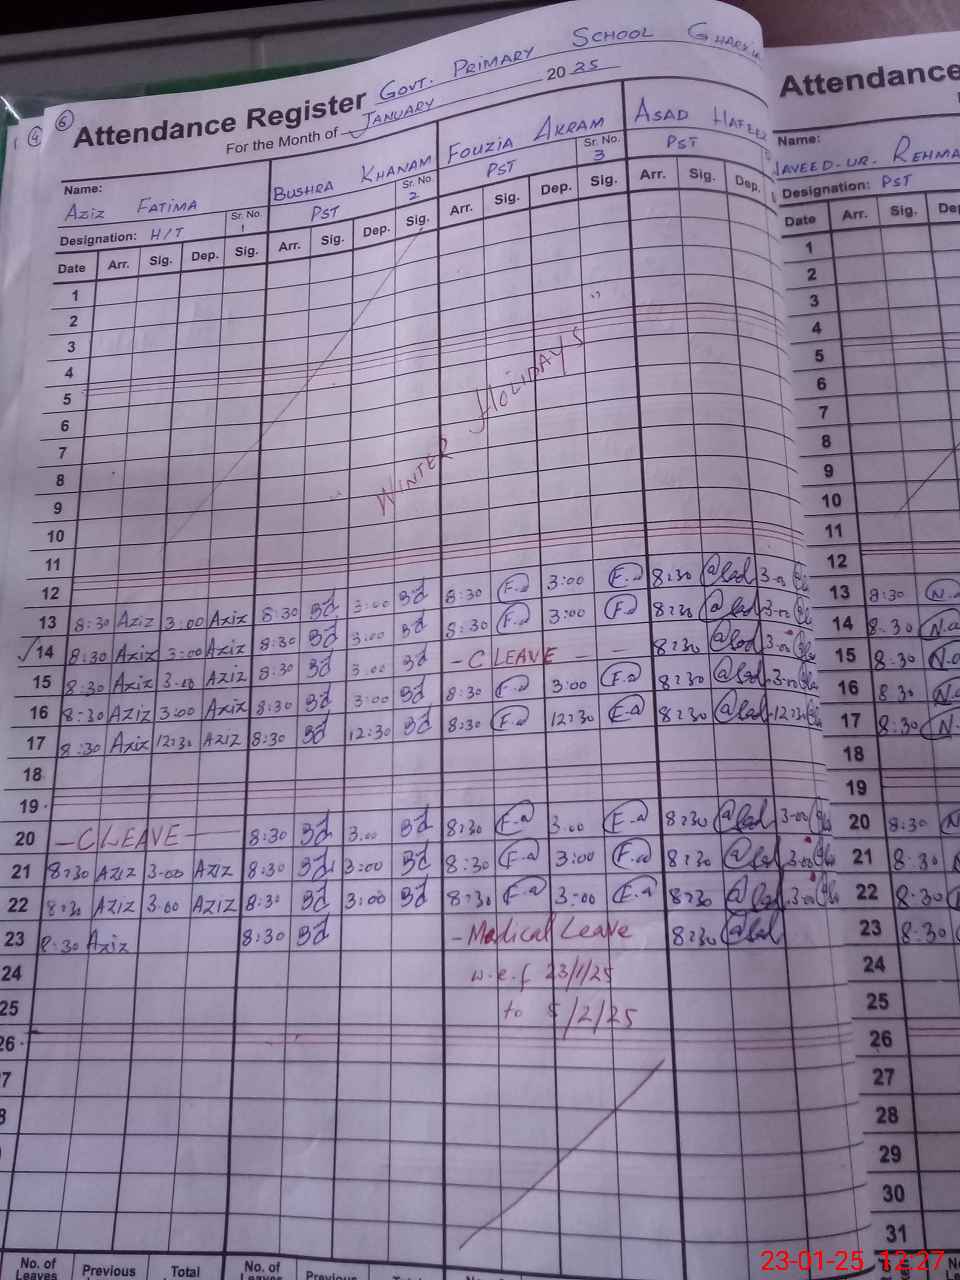 GOVT. PRIMARY SCHOOL
6 Attendance Register
4
For the Month of JANUARY 2025
Attendance
Name:
AZIZ FATIMA
BUSHRA KHANAM
FOUZIA AKRAM
ASAD HAFEEZ
Name:
NAVEED-UR. REHMA
Designation: H/T Sr. No. 1
PST Sr. No. 2
PST Sr. No. 3
PST
Designation: PST
Date Arr. Sig. Dep. Sig. Arr. Sig. Dep. Sig. Arr. Sig. Dep. Sig. Arr. Sig. Dep.
Date Arr. Sig. Dep
1 1
2 2
3 3
4 4
5 5
6 6
7 7
8 8
9 9
10 10
11 11
" WINTER HOLIDAYS "
12 12
13 8:30 Aziz 3:00 Aziz 8:30 Bd 3:00 Bd 8:30 F.a 3:00 F.a 8:30 @sad 3-00 13 8:30 N.a
14 8:30 Aziz 3:00 Aziz 8:30 Bd 3:00 Bd 8:30 F.a 3:00 F.a 8:30 @sad 3-00 14 8.30 N.a
15 8:30 Aziz 3-00 Aziz 8:30 Bd 3.00 Bd - C LEAVE - 8:30 @sad 3-00 15 8.30 N.a
16 8:30 Aziz 3:00 Aziz 8:30 Bd 3:00 Bd 8:30 F.a 3:00 F.a 8:30 @sad 3-00 16 8.30 N.a
17 8:30 Aziz 12:30 AZIZ 8:30 Bd 12:30 Bd 8:30 F.a 12:30 F.a 8:30 @sad 12-30 17 8:30 N.
18 18
19 19
20 - C LEAVE - 8:30 Bd 3.00 Bd 8:30 F.a 3.00 F.a 8:30 @sad 3-00 20 8:30 N
21 8:30 AZIZ 3-00 AZIZ 8:30 Bd 3:00 Bd 8:30 F.a 3:00 F.a 8:30 @sad 3-00 21 8.30 N
22 8:30 AZIZ 3.00 AZIZ 8:30 Bd 3:00 Bd 8:30 F.a 3:00 F.a 8:30 @sad 3-00 22 8.30
23 8:30 Aziz 8:30 Bd - Medical Leave 8:30 @sad 23 8:30
24 w.e.f 23/1/25 24
25 to 5/2/25 25
26 26
7 27
8 28
29
30
31
No. of Leaves Previous Total No. of Previous
23-01-25 12:27